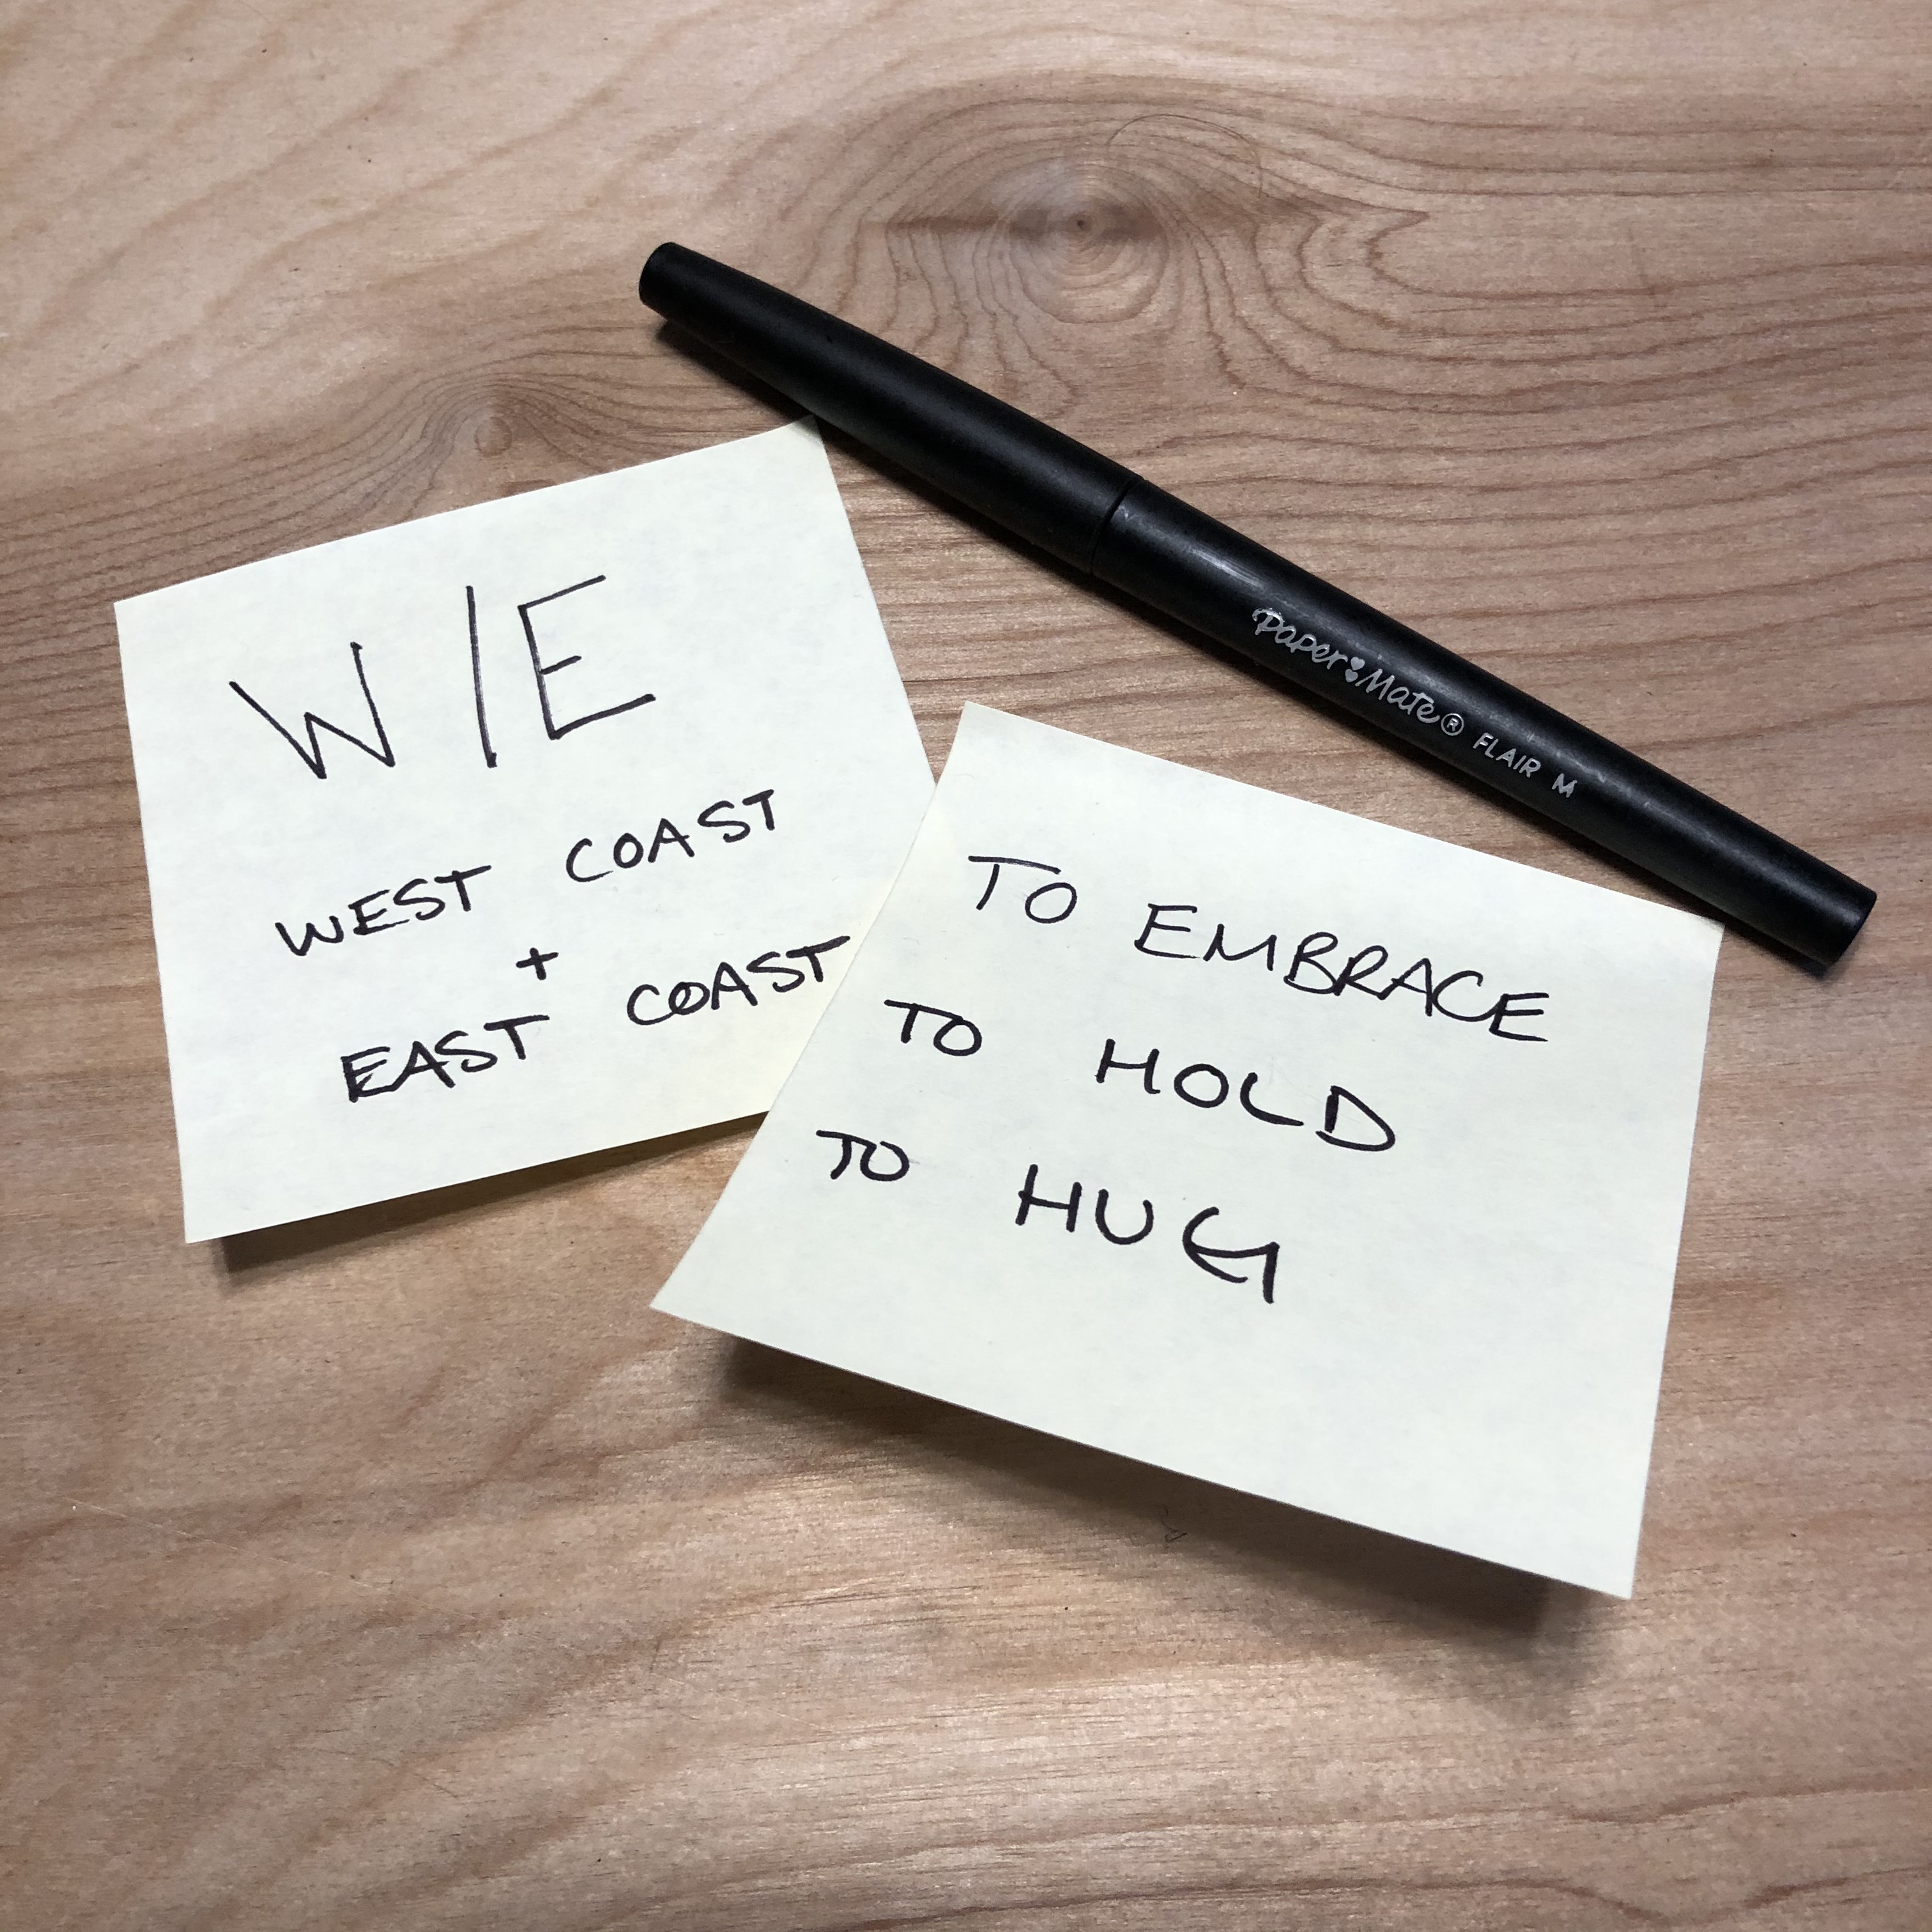 W/E
WEST COAST
+
EAST COAST
TO EMBRACE
TO HOLD
TO HUG
Paper Mate® FLAIR M